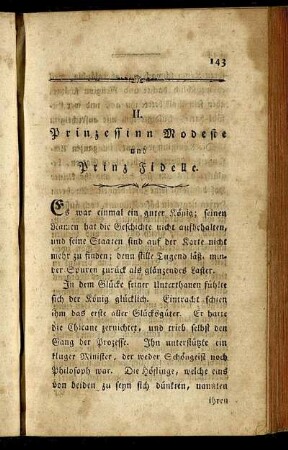 143
II.
Prinzessinn Modeste
und
Prinz Fidelle.
Es war einmal ein guter König; seinen
Namen hat die Geschichte nicht aufbehalten,
und seine Staaten sind auf der Karte nicht
mehr zu finden; denn stille Tugend läßt min-
der Spuren zurück als glänzendes Laster.
In dem Glücke seiner Unterthanen fühlte
sich der König glücklich. Eintracht schien
ihm das erste aller Glücksgüter. Er hatte
die Chicane zernichtet, und trieb selbst den
Gang der Prozesse. Ihn unterstützte ein
kluger Minister, der weder Schöngeist noch
Philosoph war. Die Höflinge, welche eins
von beiden zu seyn sich dünkten, nannten
ihren